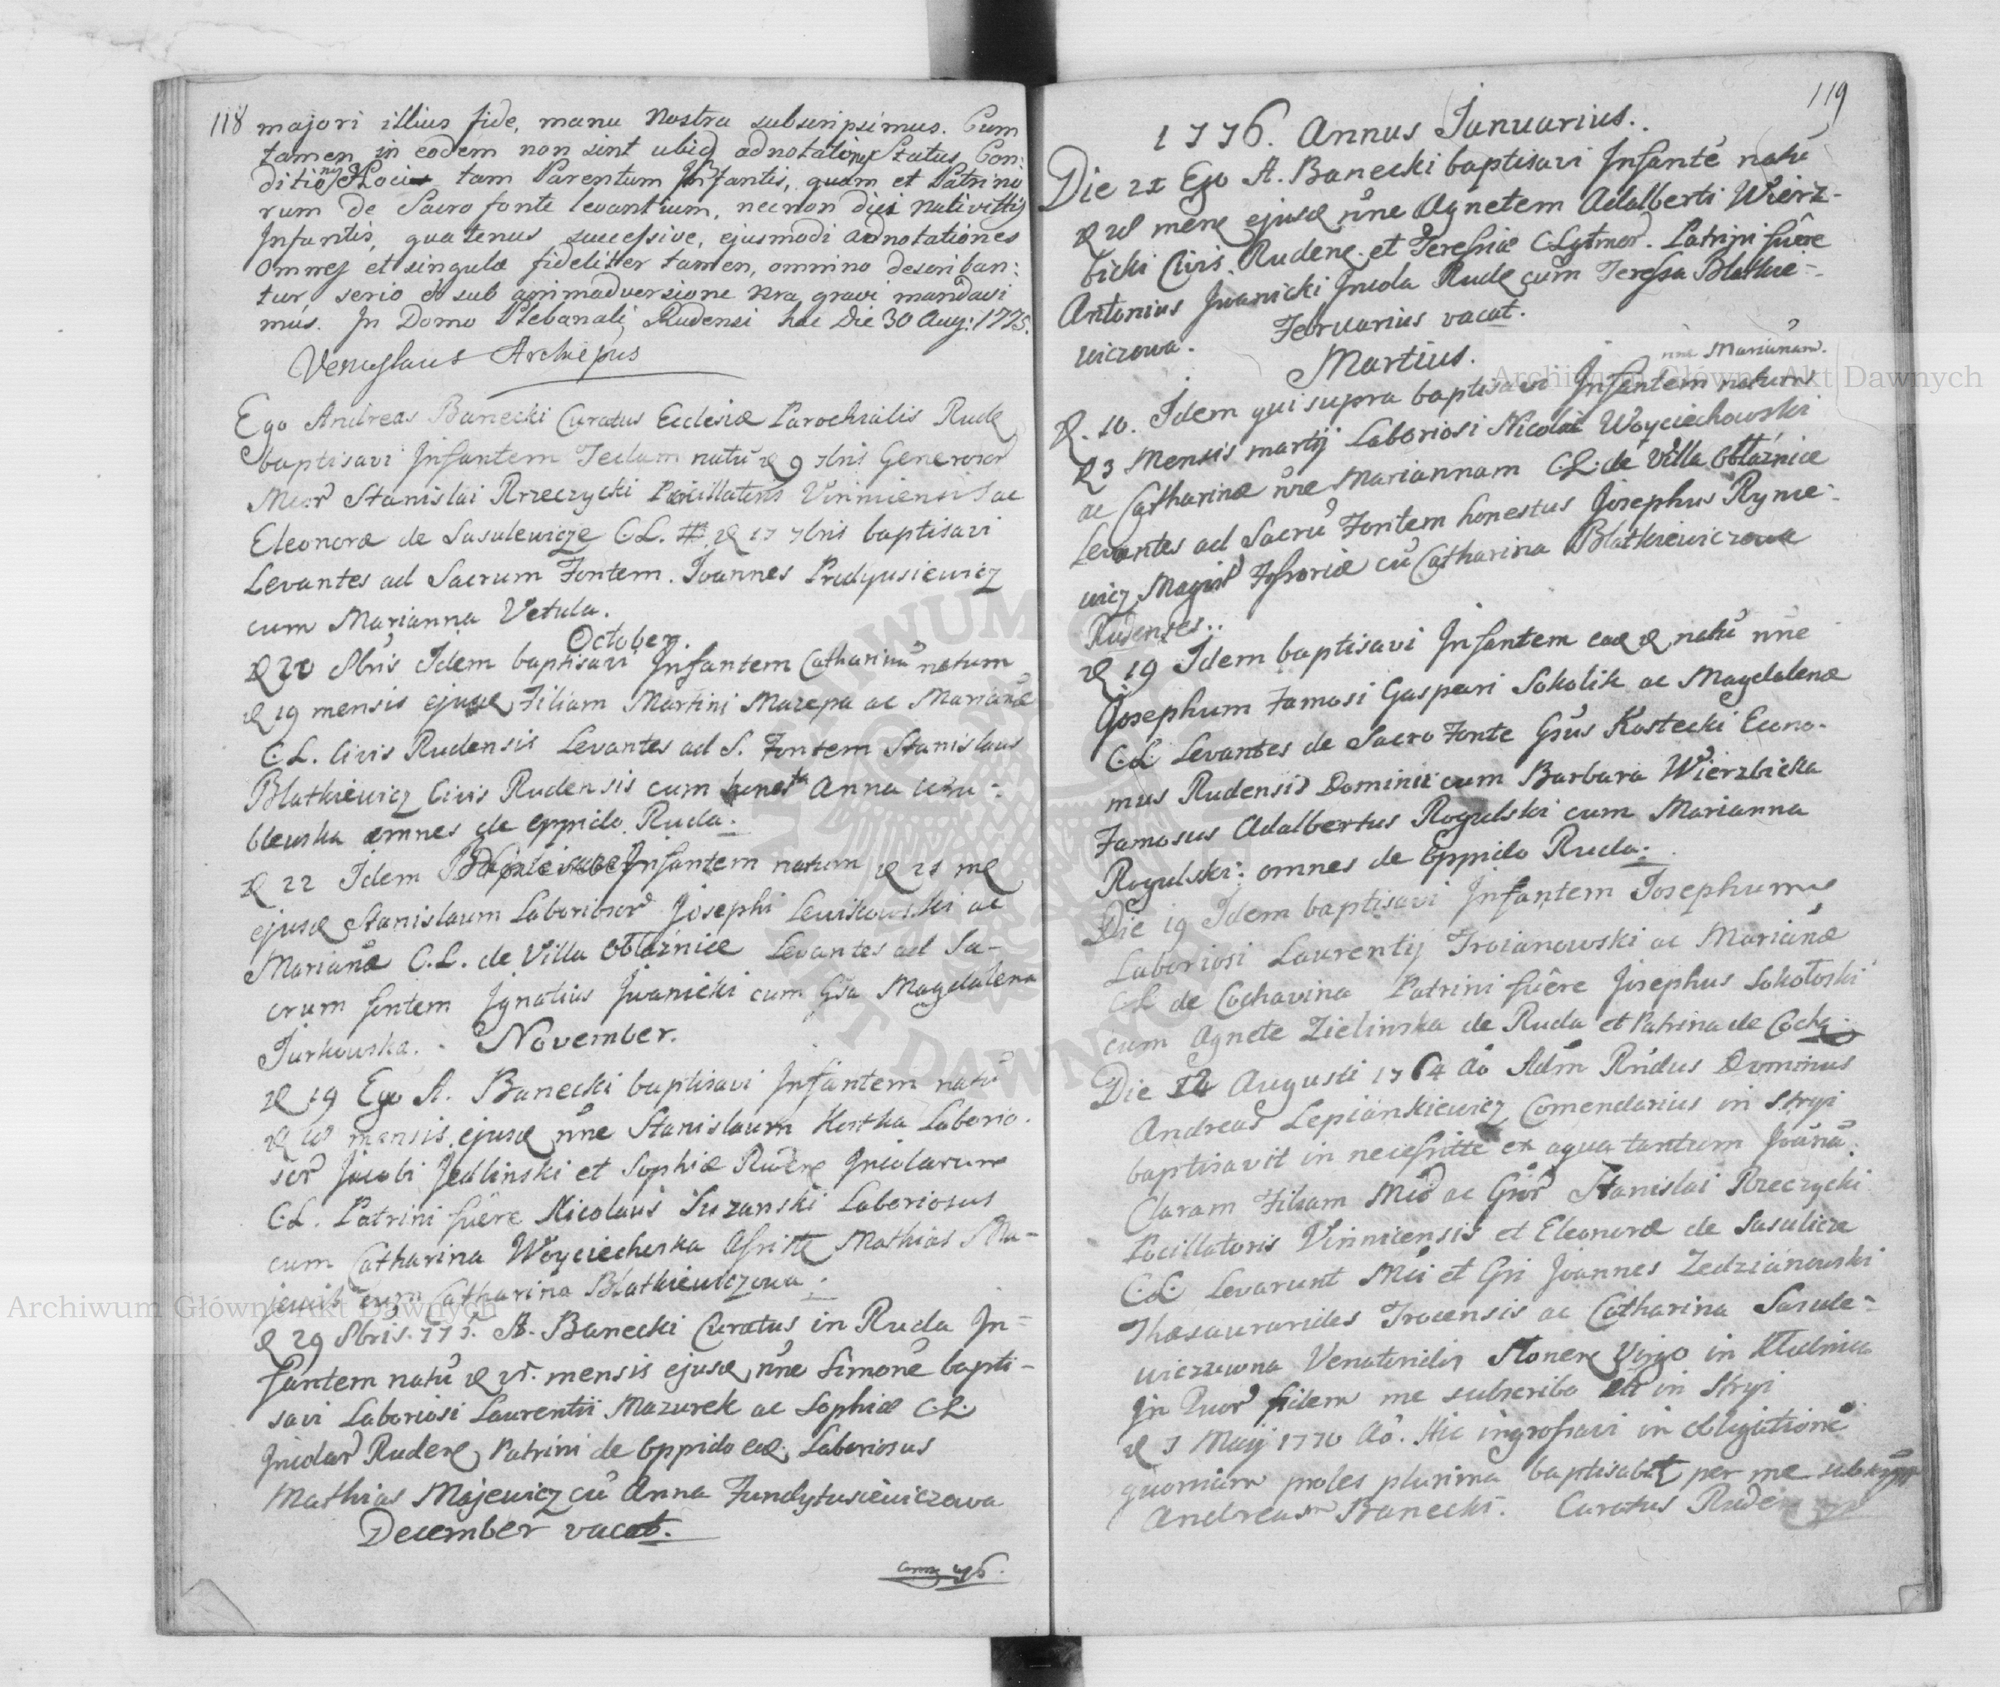 118
majori illius fide, manu Nostra subscripsimus. Cum
tamen in eodem non sint ubiq adnotationes Status, Con:
ditionis Locis tam Parentum Infantis, quam et Patrino
rum de Sacro fonte levantium, necnon diei nativittis
Infantis, quatenus successive, ejusmodi adnotationes
omnes et singulæ fideliter tamen, omnino describan:
tur serio et sub animadversione nra gravi mandavi
mus. In Domo Plebanali Rudensi hac Die 30 Aug: 1775.
Venceslaus Archiepus
Ego Andreas Banecki Curatus Ecclesiæ Parochialis Rudę
baptisavi Infantem Teclam natū 9 7bris Generosor
Mcor Stanislai Rzeczycki Pocillatoris Vinnicensis ac
Eleonoræ de Sasulewicze C.L. 17 7bris baptisavi
Levantes ad Sacrum Fontem. Joannes
cum Marianna Vetula.
October.
20 8bris Idem baptisavi Infantem Catharinā natam
19 mensis ejusd Filiam Martini Mazepa ac Mariañæ
C.L. Civis Rudensis Levantes ad S. Fontem Stanislaus
Blatkiewicz Civis Rudensis cum honesta Anna Wru-
blewska omnes de oppido Ruda.
22 Idem baptisavi Infantem natum 21
ejusd Stanislaum Laboriosor Josephi Lewikowski ac
Mariañæ C.L. de Villa Obłaźnice Levantes ad Sa-
crum fontem Ignatius Iwanicki cum Gsa Magdalena
Turkowska. November.
19 Ego A. Banecki baptisavi Infantem natū
mensis ejusd nñe Stanislaum Kostka Laborio.
sor Jacobi Jedlinski et Sophiæ Rudeñę Incolarum
C.L. Patrini fuêre Nicolaus Suzanski Laboriosus
cum Catharina Woyciechoska Mathias Ma-
jewicz cum Catharina Blatkiewiczowa.
29 8bris. 775. A. Banecki Curatus in Ruda In-
fantem natū mensis ejusd, nñe Simonē bapti-
savi Laboriosi Laurentii Mazurek ac Sophiæ C.L.
Incolar Rudeñę, Patrini de Oppido eod. Laboriosus
Mathias Majewicz cū Anna Fundytusiewiczowa
December vacat.
119
1776. Annus Januarius.
Die 21 Ego A. Banecki baptisavi Infantē natū
ejusd nñe Agnetem Adalberti Wierz-
bicki Civis Rudeñę et Teressiæ C. Lgtmor. Patrini fuêre
Antonius Iwanicki Incola Rudę cum Teressa Blatkie-
wiczowa. Februarius vacat.
Martius.
nñe Mariañam.
10. Idem qui supra baptisavi Infantem natum
3 Mensis martij Laboriosi Nicolai Woyciechowski
ac Catharinæ nñe Mariannam C.L. de Villa Obłaźnice
Levantes ad Sacrū Fontem honestus Josephus Ryme-
wicz Magist cū Catharina Blatkiewiczowa
Rudenses..
19 Idem baptisavi Infantem natū nñe
Josephum Famosi Gaspari Sokolik ac Magdalenæ
C.L. Levantes de Sacro Fonte Gsus Kostecki Econo-
mus Rudensis Dominii cum Barbara Wierzbicka
Famosus Adalbertus Rogulski cum Marianna
Rogulski: omnes de Oppido Ruda.
Die 19 Idem baptisavi Infantem Josephum
Laboriosi Laurentij Troianowski ac Mariañæ
C.L. de Cochavina Patrini fuêre Josephus Sokołoski
cum Agnete Zielinska de Ruda et Patrina de Cocha.
Die 12 Augusti 1764 Ao Adm Rñdus Dominus
Andreas Lepiankiewicz Comendarius in Stryi
baptisavit in necessitte ex aqua tantum Joañā.
Claram Filiam Mci ac Gsor Stanislai Rzeczycki
Pocillatoris Vinnicensis et Eleonoræ de Sasulicze
C.L. Levarunt Mci et Gsi Joannes Zedzianowski
Thæsaurarides Trocensis ac Catharina Sasule-
wiczowna Venatoridis Virgo in
In quor fidem me subscribo in Stryi
7 Maij 1770 Ao. Hic ingrossavi in obligationē
quoniam proles plurima per me
Andreas Banecki. Curatus